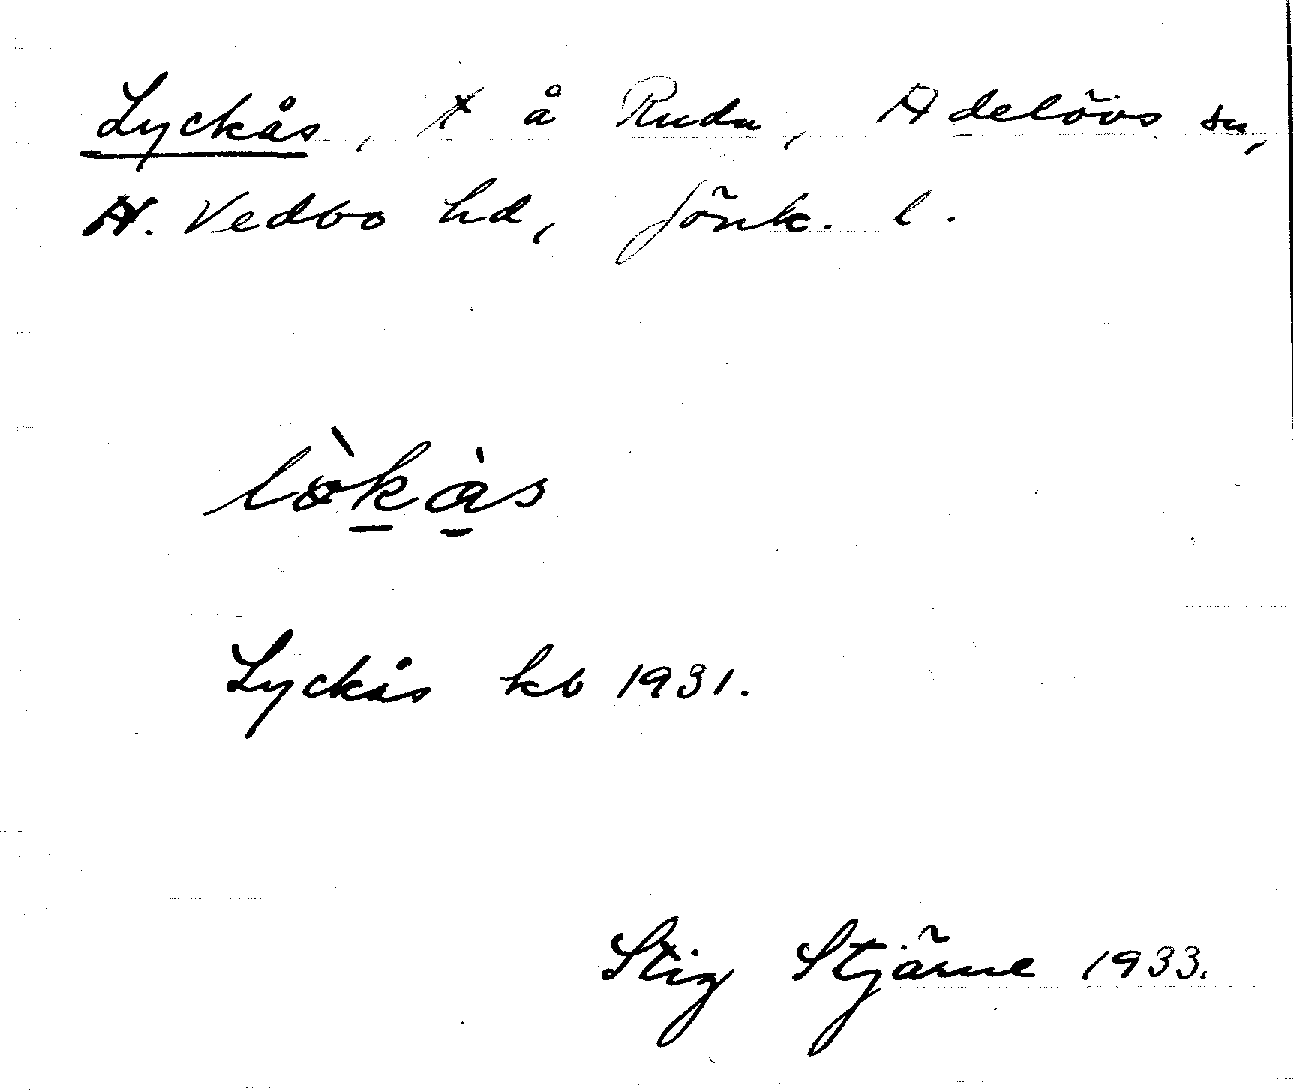 Lyckås, t å Ruda, Adelövs sn,
N. Vedbo hd, Jönk. l.
lø̀kàs
Lyckås kb 1931.
Stig Stjärne 1933.